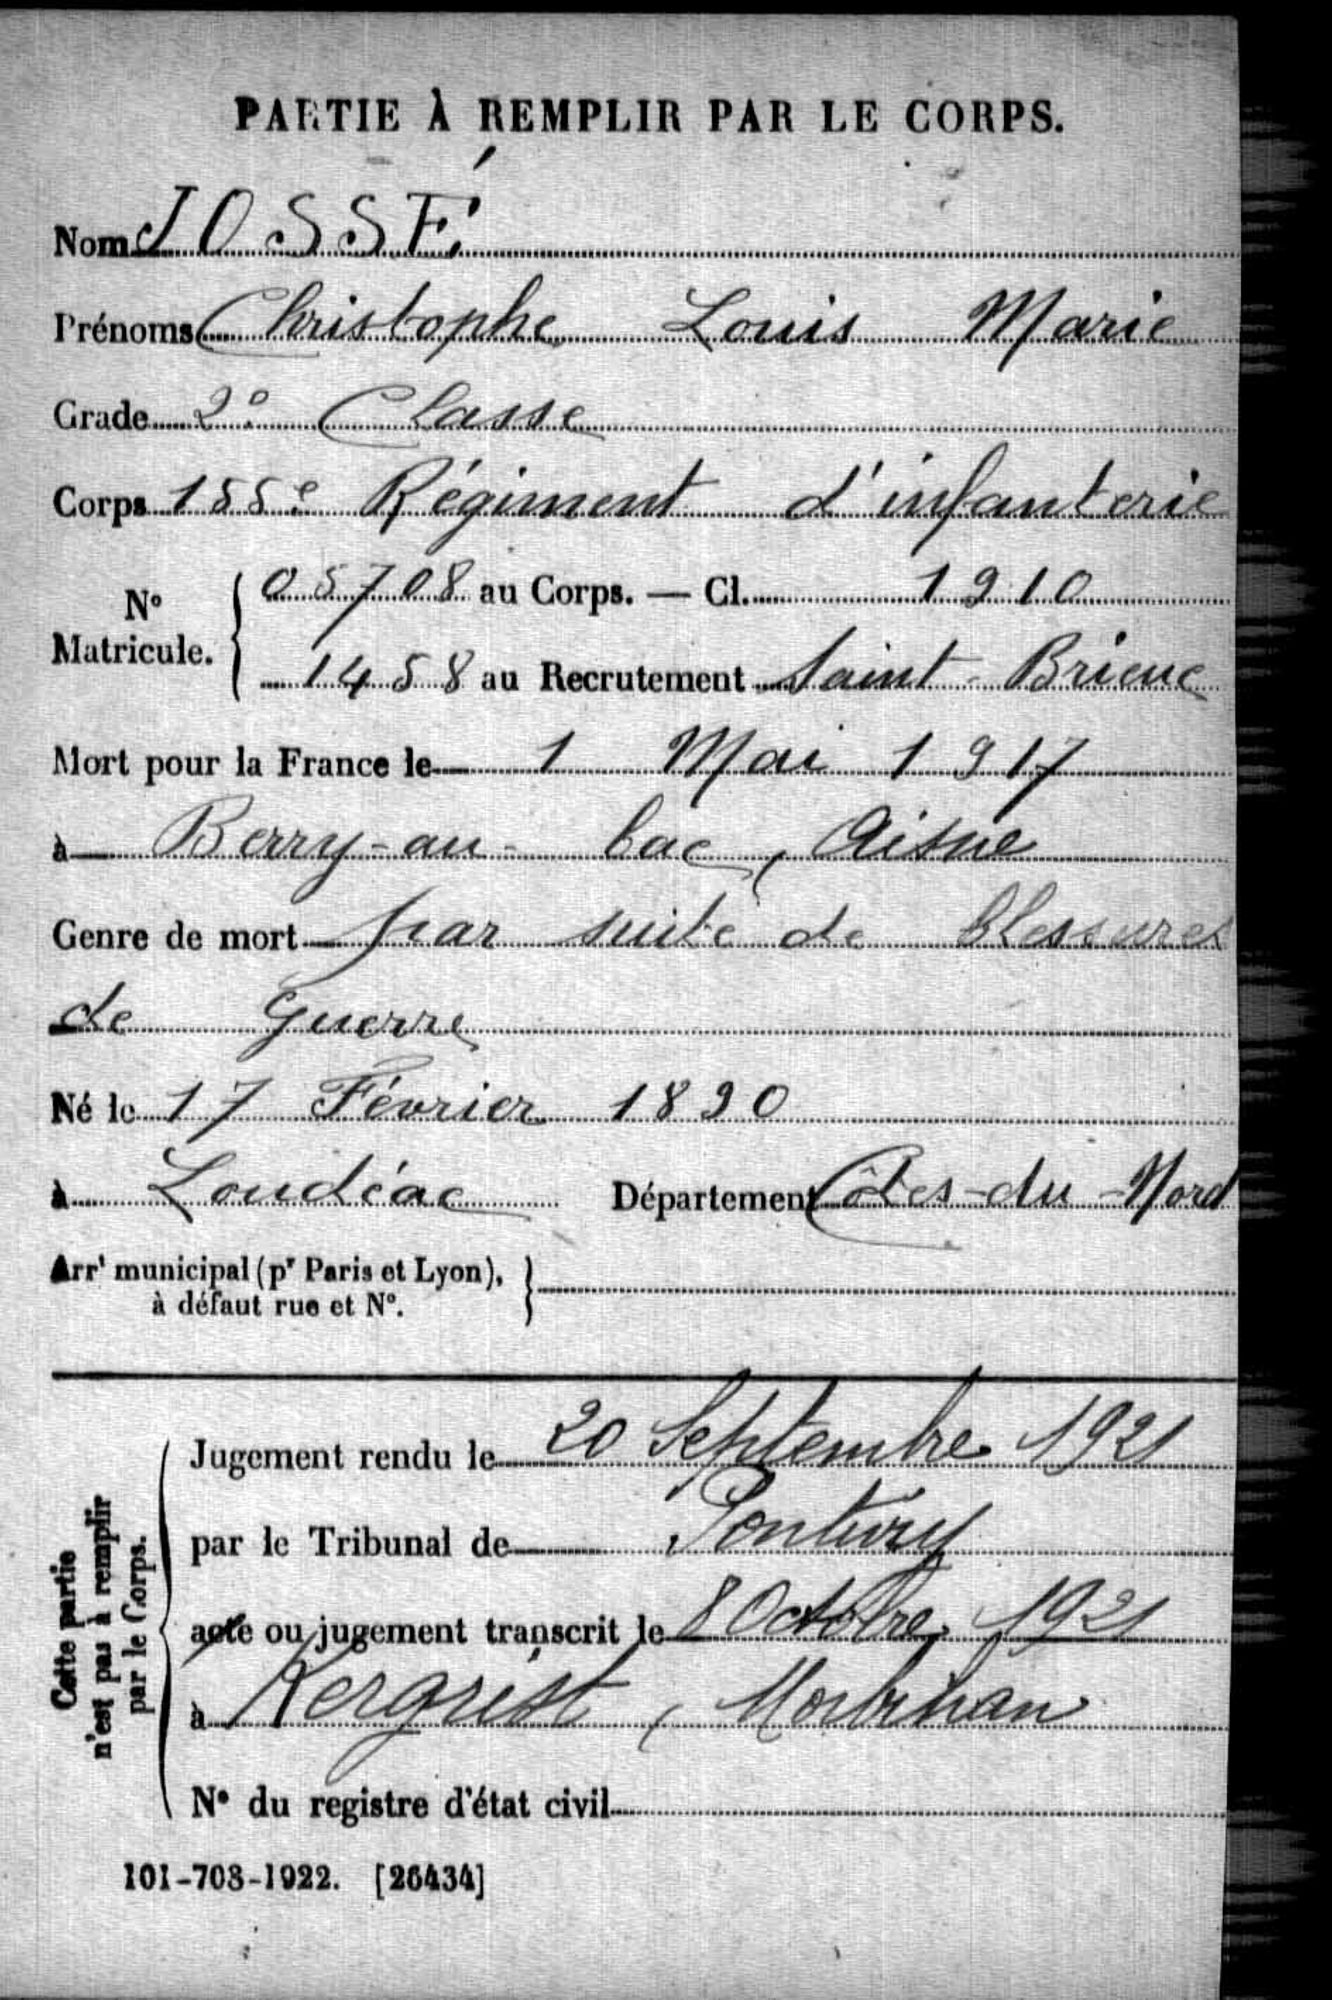 PARTIE À REMPLIR PAR LE CORPS.
Nom JOSSÉ
Prénoms Christophe Louis Marie
Grade 2e Classe
Corps 155e Régiment d'infanterie
N° Matricule. { 05708 au Corps. — Cl. 1910
1458 au Recrutement Saint-Brieuc
Mort pour la France le 1 Mai 1917
à Berry-au-bac, Aisne
Genre de mort par suite de blessures
de Guerre
Né le 17 Février 1890
à Loudéac Département Côtes-du-Nord
Arrt municipal (pr Paris et Lyon), }
à défaut rue et N°.
Cette partie
n'est pas à remplir
par le Corps.
Jugement rendu le 20 Septembre 1921
par le Tribunal de Pontivy
acte ou jugement transcrit le 8 Octobre 1921
à Kergrist, Morbihan
N° du registre d'état civil
101-708-1922. [26434]